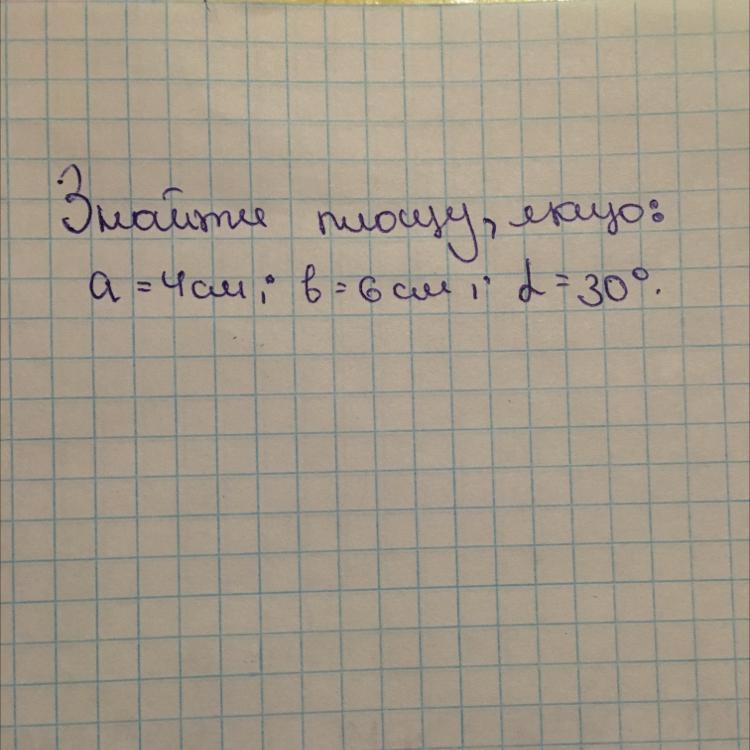 Знайти площу, якщо:
a = 4 см; в = 6 см; α = 30°.